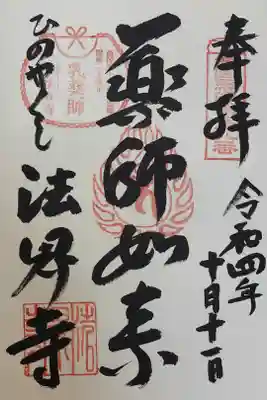 奉拝
令和四年
十月十一日
薬師如来
ひのやくし
法界寺